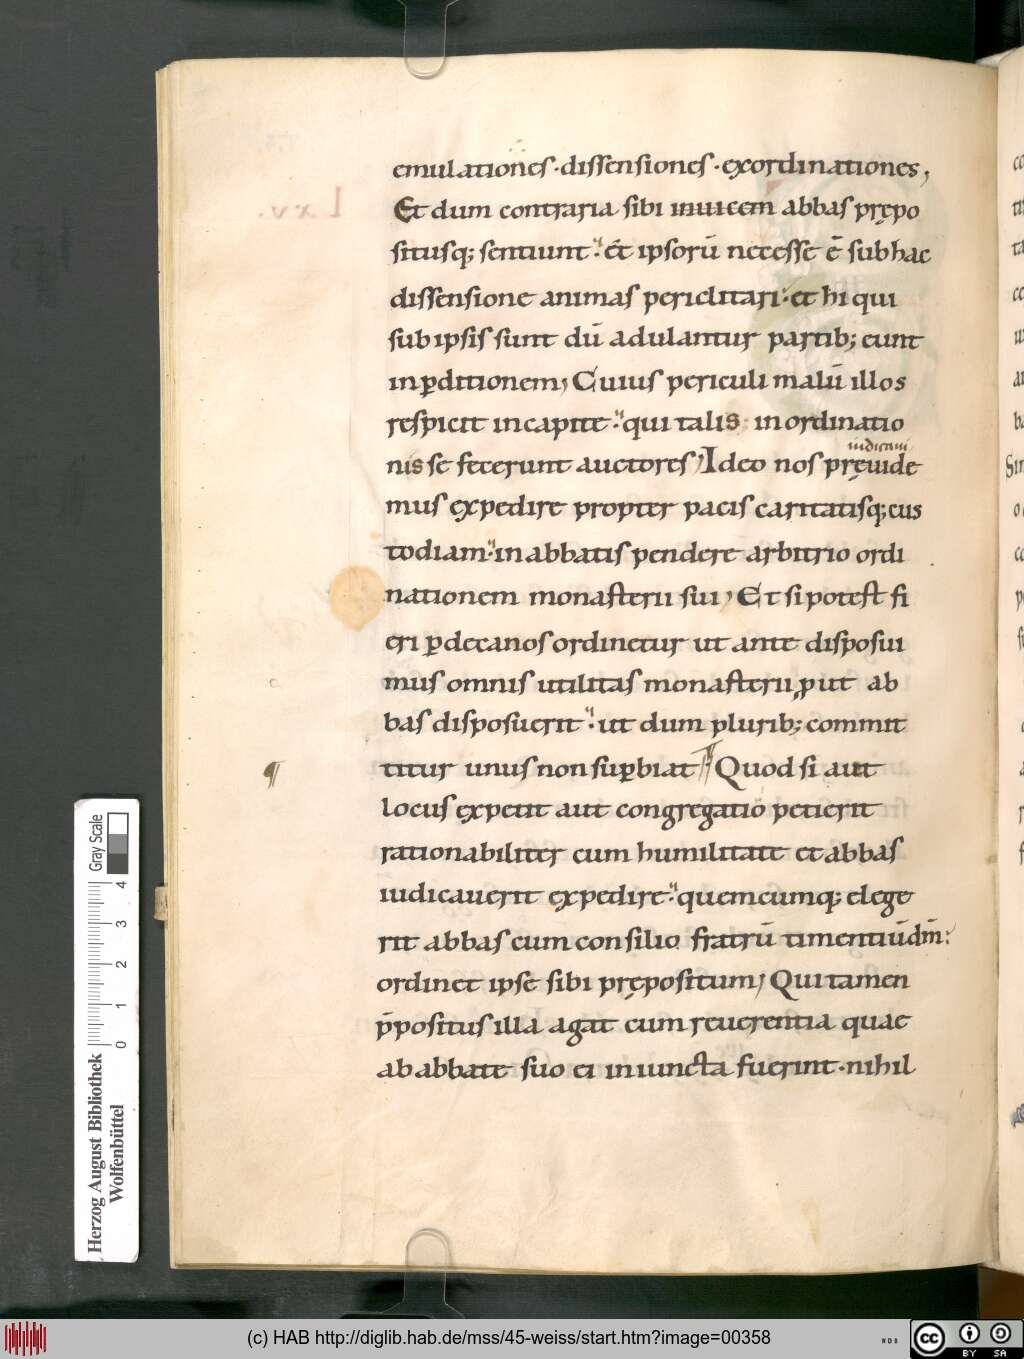 emulationes · dissensiones · exordinationes,
Et dum contraria sibi inuicem abbas prępo
situsq; sentiunt · et ipsorū necesse ē sub hac
dissensione animas periclitari · et hi qui
sub ipsis sunt dū adulantur partib; eunt
in ꝑditionem, Cuius periculi malū illos
respicit in capite · qui talis inordinatio
nis se fecerunt auctores, Ideo nos pręuide
mus expedire propter pacis caritatisq; cus
todiam · in abbatis pendere arbitrio ordi
nationem monasterii sui, Et si potest fi
eri ꝑ decanos ordinetur ut ante disposui
mus omnis utilitas monasterii ꝓut ab
bas disposuerit · ut dum plurib; commit
¶
titur unus non suꝑbiat ¶ Quod si aut
locus expetit aut congregatio petierit
rationabiliter cum humilitate et abbas
iudicauerit expedire · quemcumq; elege
rit abbas cum consilio fratrū timentiū dm̄:
ordinet ipse sibi prępositum, Qui tamen
p̄positus illa agat cum reuerentia quae
ab abbate suo ei iniuncta fuerint · nihil
Gray Scale
4
3
2
1
0
Herzog August Bibliothek
Wolfenbüttel
(c) HAB http://diglib.hab.de/mss/45-weiss/start.htm?image=00358
cc
BY SA